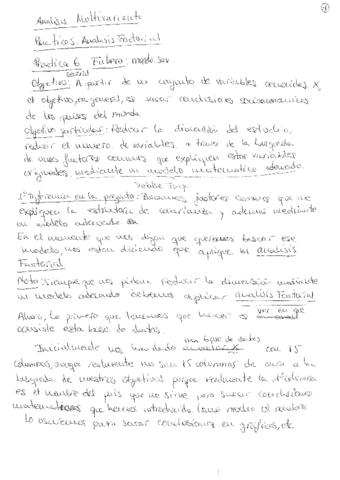 Analisis Multivariante
Practicas. Analisis Factorial
Practica 6. Fichero: mundo.sav
social
Objetivo: A partir de un conjunto de variables conocidas X,
el objetivo, en general, es sacar conclusiones socioeconomicas
de los paises del mundo.
Objetivo particular: Reducir la dimension del estudio,
reducir el numero de variables, a traves de la busqueda
de unos factores comunes que expliquen estas variables
originales, mediante un modelo matematico adecuado.
1ª Diferencia en la pregunta: Buscamos factores comunes que me
expliquen la estructura de covariantes y ademas mediante
un modelo adecuado
En el momento que nos digan que queremos buscar ese
modelo, nos estan diciendo que aplique un analisis
Factorial
Nota: Siempre que nos pidan reducir la dimension mediante
un modelo adecuado debemos aplicar analisis Factorial
Ahora, lo primero que tenemos que hacer es ver en que
consiste esta base de datos.
una base de datos
Inicialmente nos han dado con 15
columnas, aunque realmente no son 15 columnas de cara a la
busqueda de nuestros objetivos porque realmente la 1ª columna
es el nombre del pais que no sirve para sacar conclusiones
matematicas que hemos introducido
lo usaremos para sacar conclusiones en gráficos, etc.